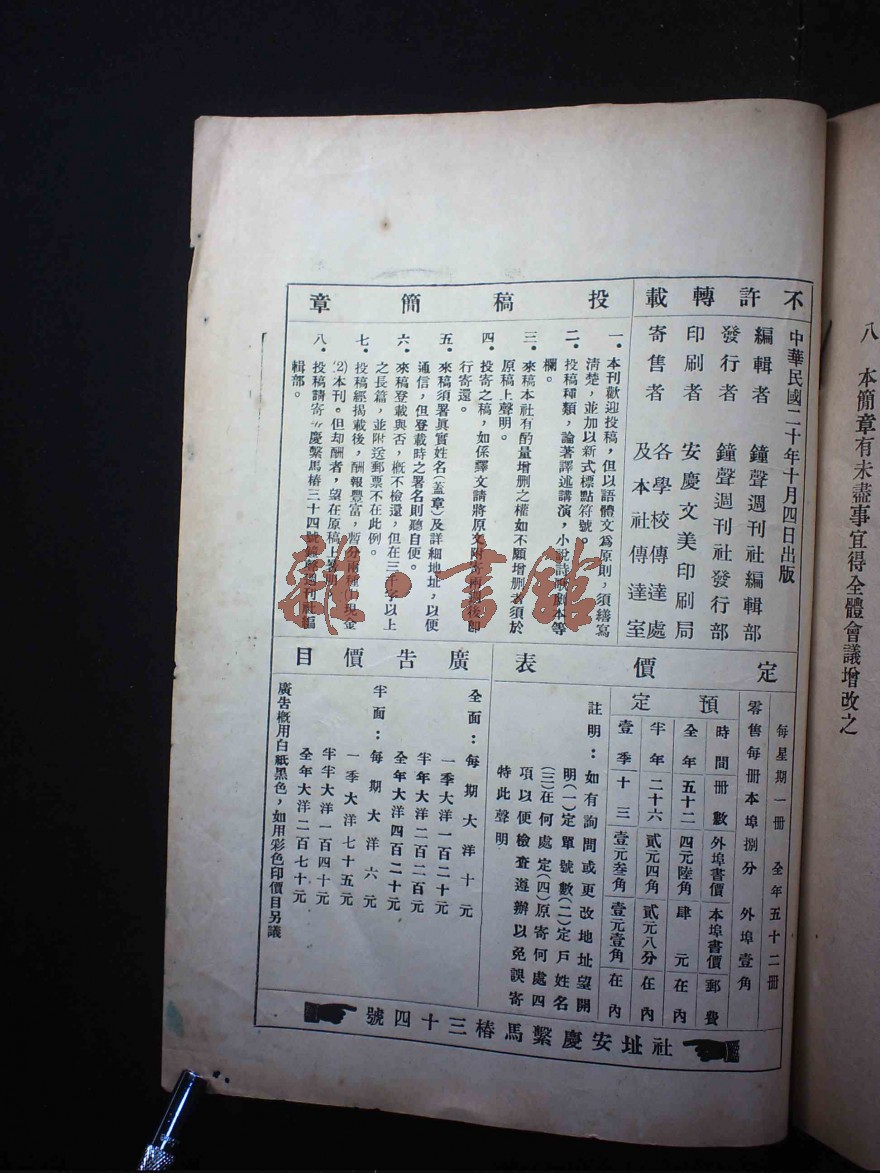 八　本簡章有未盡事宜得全體會議增改之
不許轉載
中華民國二十年十月四日出版
編輯者　鐘聲週刊社編輯部
發行者　鐘聲週刊社發行部
印刷者　安慶文美印刷局
寄售者　各學校傳達處
及本社傳達室
投稿簡章
一．本刊歡迎投稿，但以語體文爲原則，須繕寫
清楚，並加以新式標點符號。
二．投稿種類，論著譯述講演，小說詩歌劇本等
欄。
三．來稿本社有酌量增刪之權如不願增刪者須於
原稿上聲明。
四．投寄之稿，如係譯文請將原文附寄
行寄還。
五．來稿須署眞實姓名（盖章）及詳細地址，以便
通信，但登載時之署名則聽自便。
六．來稿登載與否，概不檢還，但在三千字以上
之長篇，並附送郵票不在此例。
七．投稿經揭載後，酬報豐富，暫分兩種(1)現金
(2)本刊。但却酬者，望在原稿上
八．投稿請寄〃慶繫馬樁三十四號鐘聲週刊社編
輯部。
定價表
每星期一冊　全年五十二冊
零售每冊本埠捌分　外埠壹角
預定
時間　冊數　外埠書價　本埠書價　郵費
全年　五十二　四元陸角　肆元　在內
半年　二十六　貳元四角　貳元八分　在內
壹季　十三　壹元叁角　壹元壹角　在內
註明：如有詢問或更改地址望開
明（一）定單號數（二）定戶姓名
（三）在何處定（四）原寄何處四
項以便檢查遵辦以免誤寄
特此聲明
廣告價目
全面：每期大洋十元
一季大洋一百二十元
半年大洋二百二百元
全年大洋四百二十元
半面：每期大洋六元
一季大洋七十五元
半半大洋一百四十元
全年大洋二百七十元
廣告概用白紙黑色，如用彩色印價目另議
社址安慶繫馬樁三十四號
雜·書館